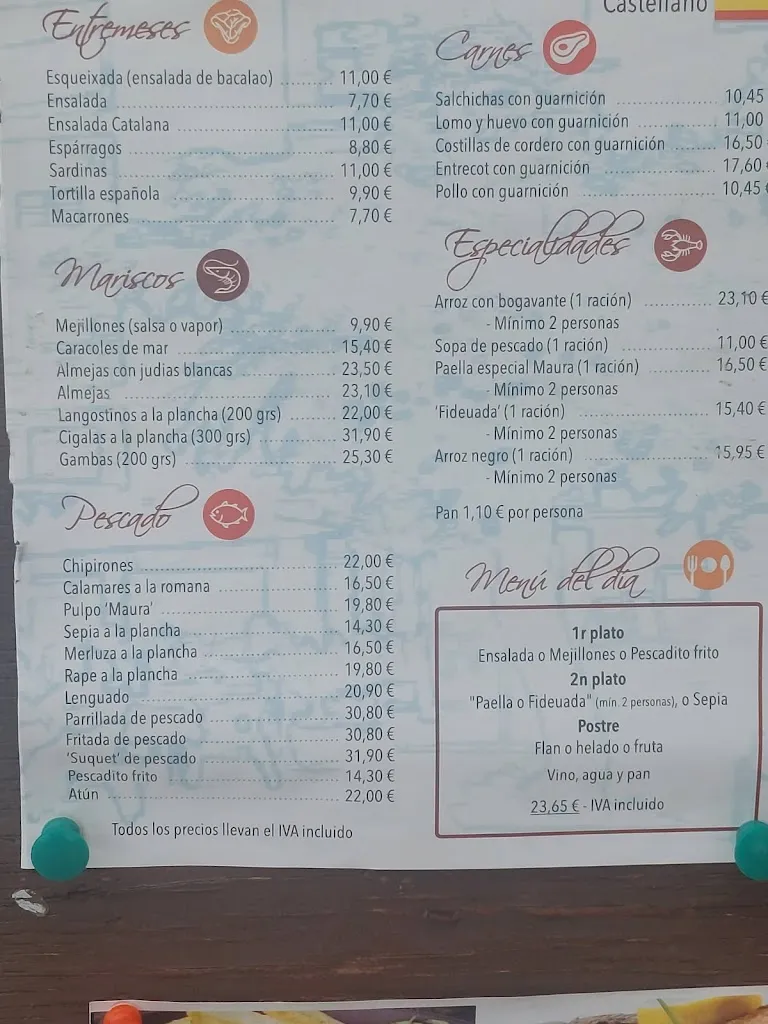 Castellano
Entremeses
Esqueixada (ensalada de bacalao) 11,00 €
Ensalada 7,70 €
Ensalada Catalana 11,00 €
Espárragos 8,80 €
Sardinas 11,00 €
Tortilla española 9,90 €
Macarrones 7,70 €
Mariscos
Mejillones (salsa o vapor) 9,90 €
Caracoles de mar 15,40 €
Almejas con judias blancas 23,50 €
Almejas 23,10 €
Langostinos a la plancha (200 grs) 22,00 €
Cigalas a la plancha (300 grs) 31,90 €
Gambas (200 grs) 25,30 €
Pescado
Chipirones 22,00 €
Calamares a la romana 16,50 €
Pulpo 'Maura' 19,80 €
Sepia a la plancha 14,30 €
Merluza a la plancha 16,50 €
Rape a la plancha 19,80 €
Lenguado 20,90 €
Parrillada de pescado 30,80 €
Fritada de pescado 30,80 €
'Suquet' de pescado 31,90 €
Pescadito frito 14,30 €
Atún 22,00 €
Todos los precios llevan el IVA incluido
Carnes
Salchichas con guarnición 10,45
Lomo y huevo con guarnición 11,00
Costillas de cordero con guarnición 16,50
Entrecot con guarnición 17,60
Pollo con guarnición 10,45
Especialidades
Arroz con bogavante (1 ración) 23,10 €
- Mínimo 2 personas
Sopa de pescado (1 ración) 11,00 €
Paella especial Maura (1 ración) 16,50 €
- Mínimo 2 personas
'Fideuada' (1 ración) 15,40 €
- Mínimo 2 personas
Arroz negro (1 ración) 15,95 €
- Mínimo 2 personas
Pan 1,10 € por persona
Menú del día
1r plato
Ensalada o Mejillones o Pescadito frito
2n plato
"Paella o Fideuada" (mín. 2 personas), o Sepia
Postre
Flan o helado o fruta
Vino, agua y pan
23,65 € - IVA incluido